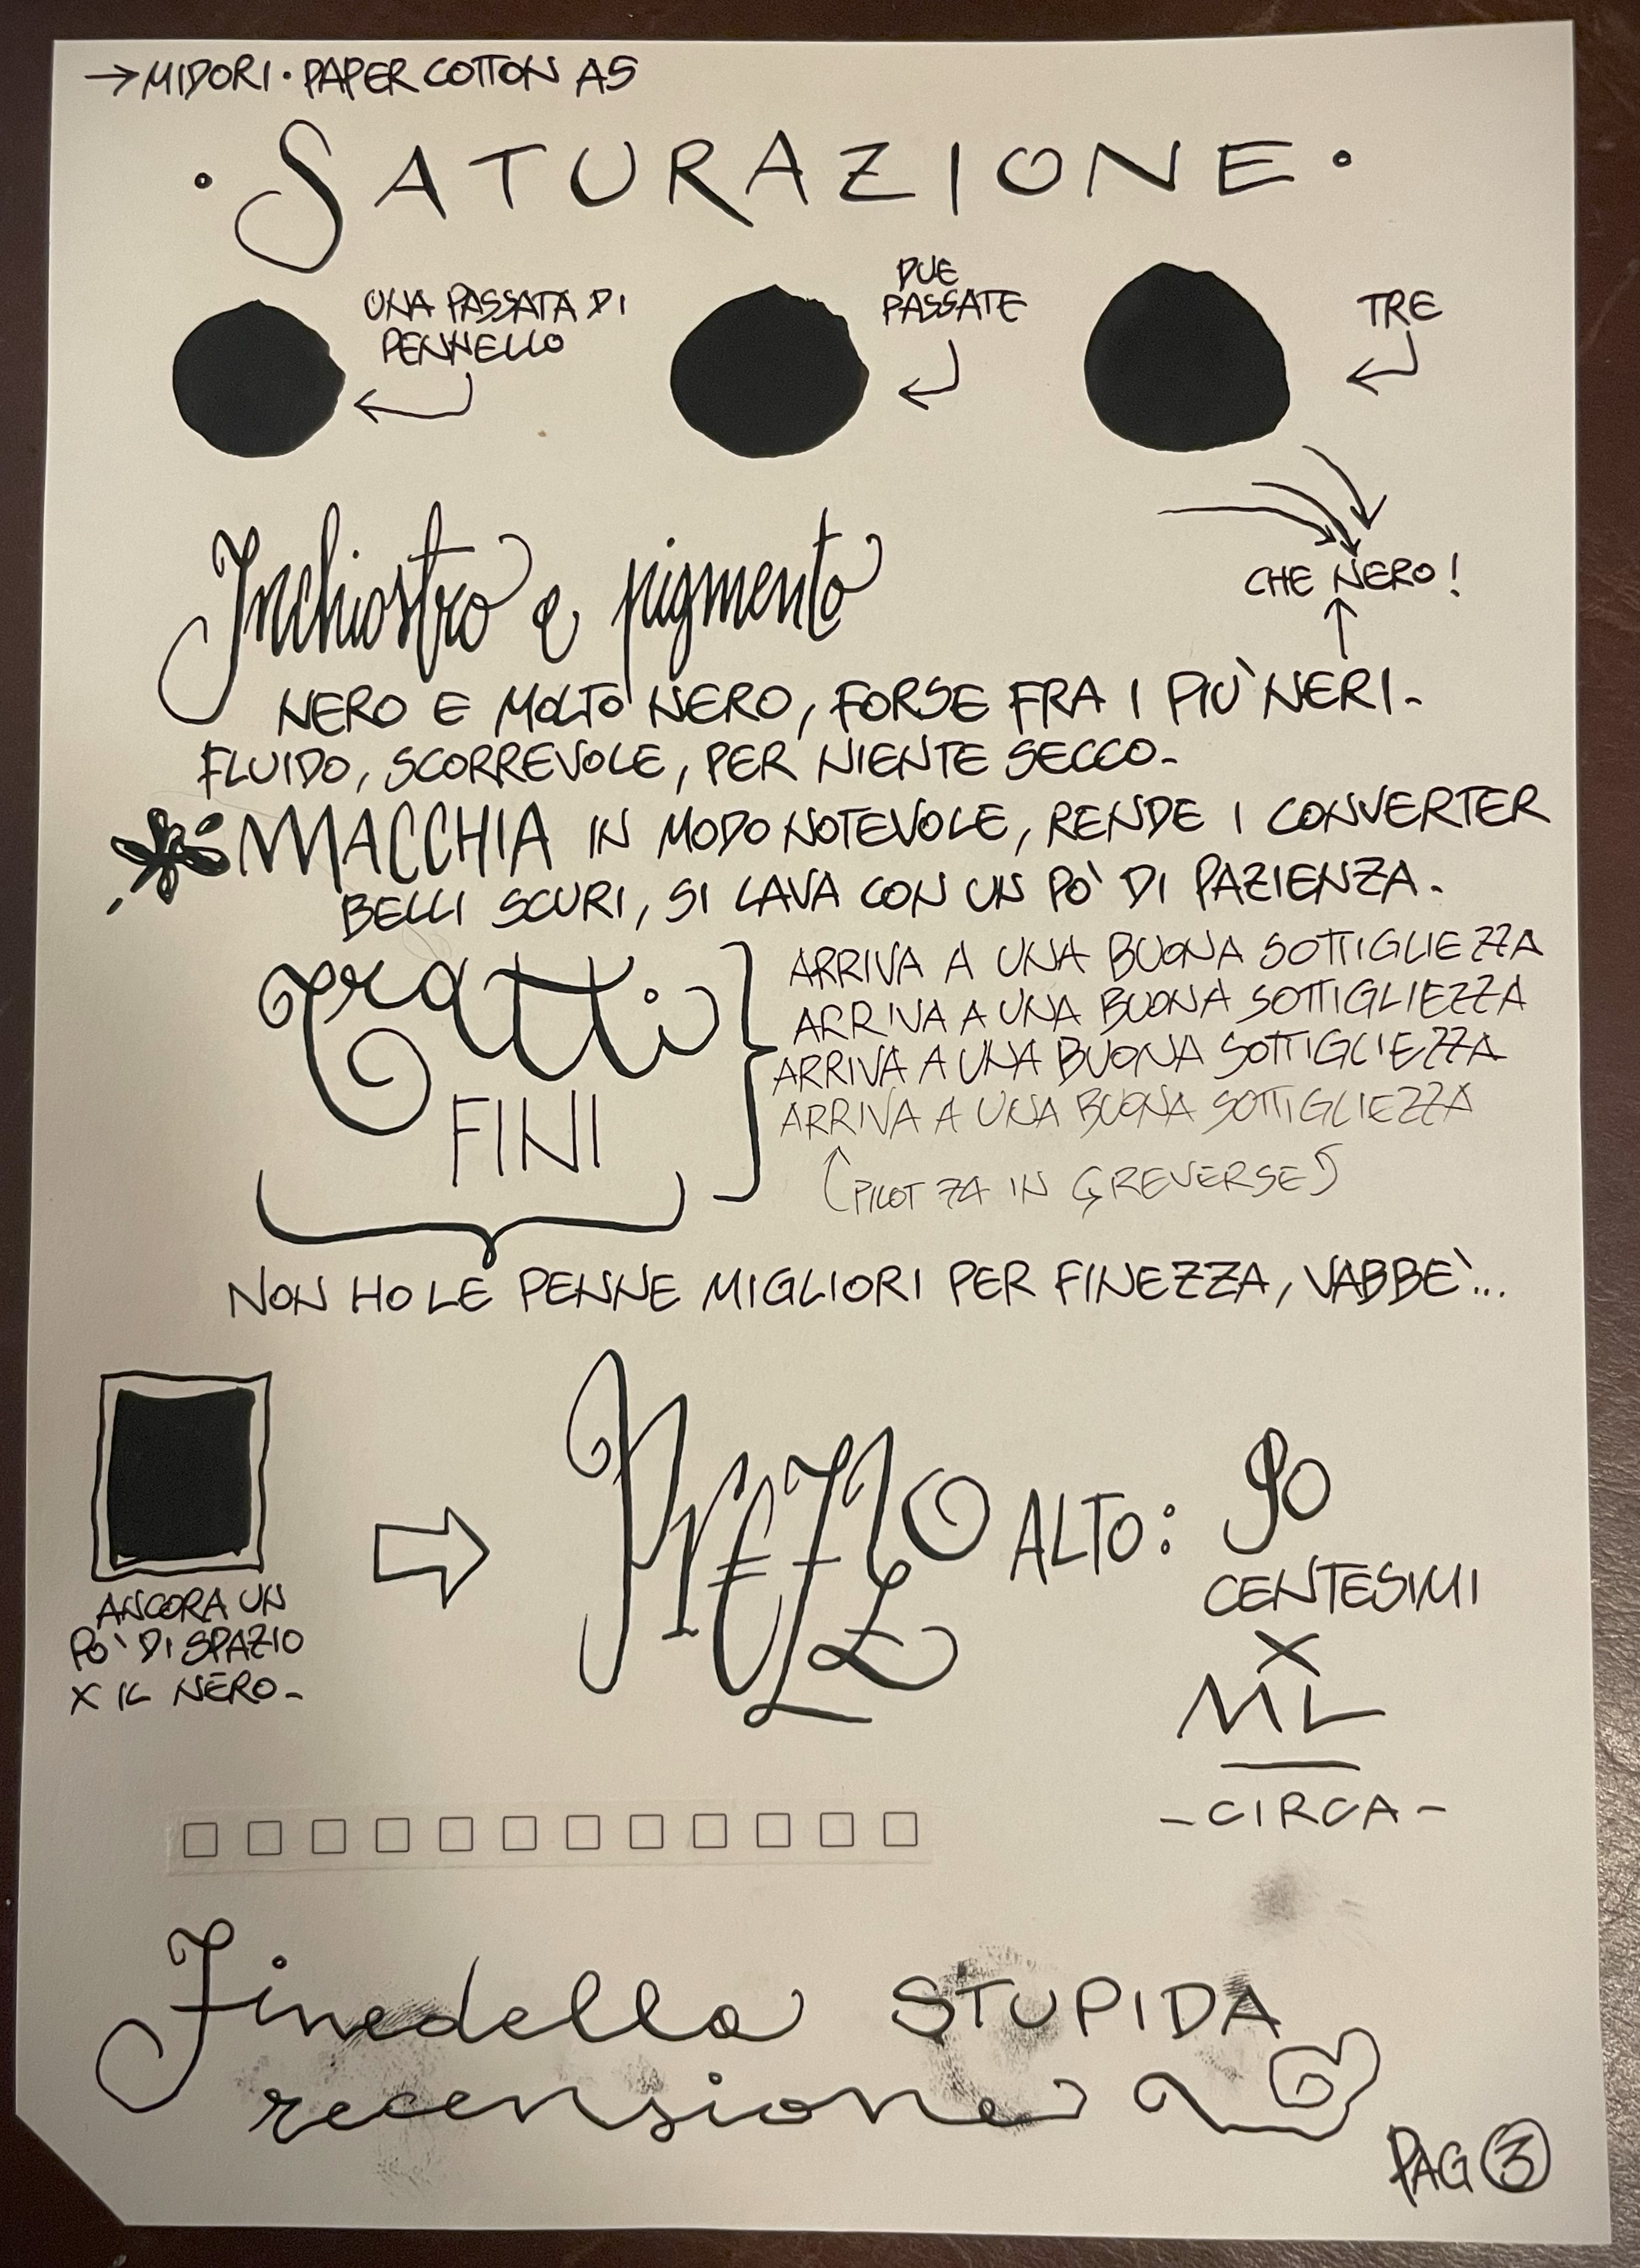 → MIDORI · PAPER COTTON A5
· SATURAZIONE ·
UNA PASSATA DI
PENNELLO
DUE
PASSATE
TRE
CHE NERO!
Inchiostro e pigmento
NERO E MOLTO NERO, FORSE FRA I PIÙ NERI-
FLUIDO, SCORREVOLE, PER NIENTE SECCO-
MACCHIA IN MODO NOTEVOLE, RENDE I CONVERTER
BELLI SCURI, SI LAVA CON UN PO' DI PAZIENZA.
Tratti
FINI
ARRIVA A UNA BUONA SOTTIGLIEZZA
ARRIVA A UNA BUONA SOTTIGLIEZZA
ARRIVA A UNA BUONA SOTTIGLIEZZA
ARRIVA A UNA BUONA SOTTIGLIEZZA
(PILOT 74 IN REVERSE)
NON HO LE PENNE MIGLIORI PER FINEZZA, VABBE'...
ANCORA UN
PO' DI SPAZIO
X IL NERO-
PREZZO ALTO: 90
CENTESIMI
X
ML
-CIRCA-
Fine della STUPIDA
recensione
PAG 3